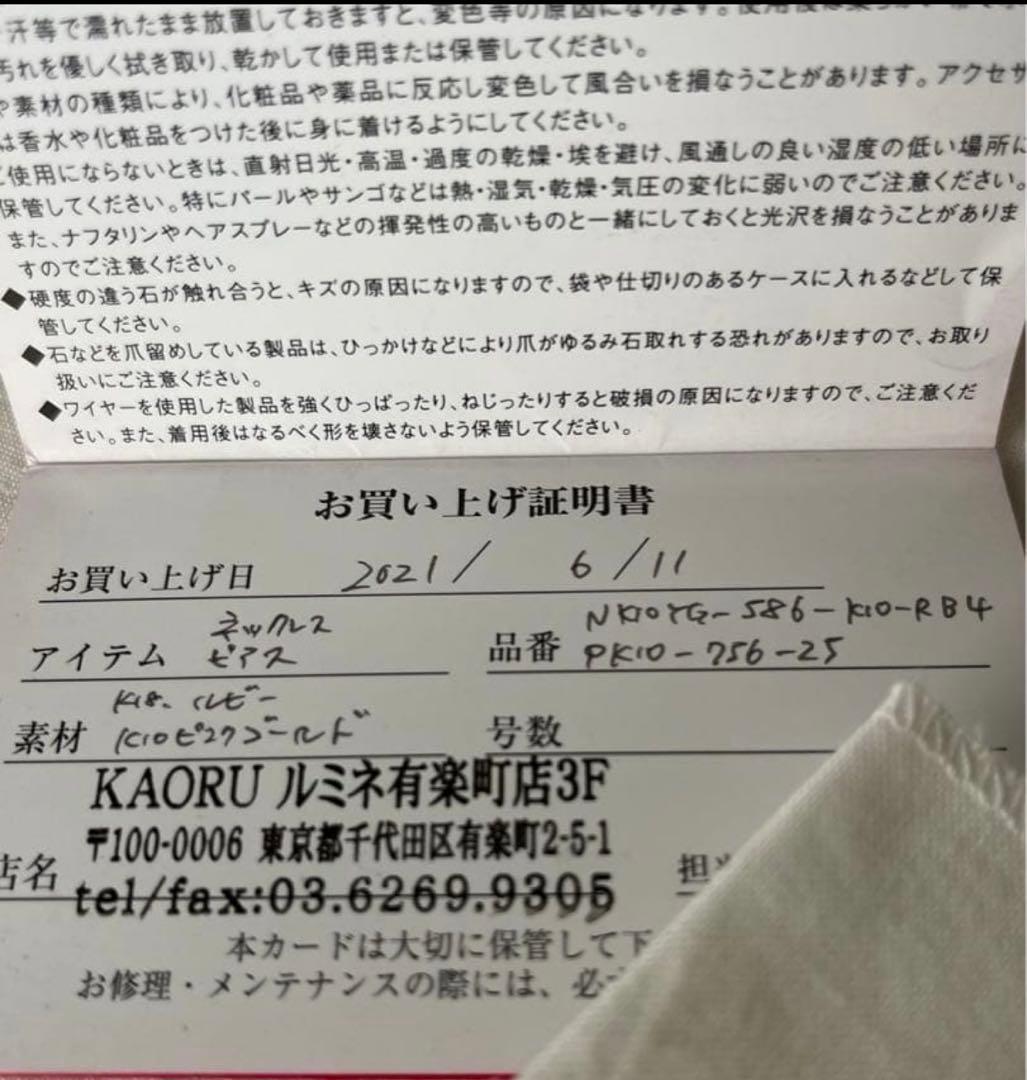 汗等で濡れたまま放置しておきますと、変色等の原因になります。使用後は柔らかい布で
汚れを優しく拭き取り、乾かして使用または保管してください。
や素材の種類により、化粧品や薬品に反応し変色して風合いを損なうことがあります。アクセサ
は香水や化粧品をつけた後に身に着けるようにしてください。
ご使用にならないときは、直射日光・高温・過度の乾燥・埃を避け、風通しの良い湿度の低い場所に
保管してください。特にパールやサンゴなどは熱・湿気・乾燥・気圧の変化に弱いのでご注意ください。
また、ナフタリンやヘアスプレーなどの揮発性の高いものと一緒にしておくと光沢を損なうことがありま
すのでご注意ください。
◆硬度の違う石が触れ合うと、キズの原因になりますので、袋や仕切りのあるケースに入れるなどして保
管してください。
◆石などを爪留めしている製品は、ひっかけなどにより爪がゆるみ石取れする恐れがありますので、お取り
扱いにご注意ください。
◆ワイヤーを使用した製品を強くひっぱったり、ねじったりすると破損の原因になりますので、ご注意くだ
さい。また、着用後はなるべく形を壊さないよう保管してください。
お買い上げ証明書
お買い上げ日 2021/ 6/11
アイテム ネックレス ピアス
品番 NK10YG-586-K10-RB4 PK10-756-25
素材 K18. ルビー K10ピンクゴールド
号数
KAORU ルミネ有楽町店3F
〒100-0006 東京都千代田区有楽町2-5-1
店名 tel/fax:03.6269.9305
担当
本カードは大切に保管して下
お修理・メンテナンスの際には、必ず